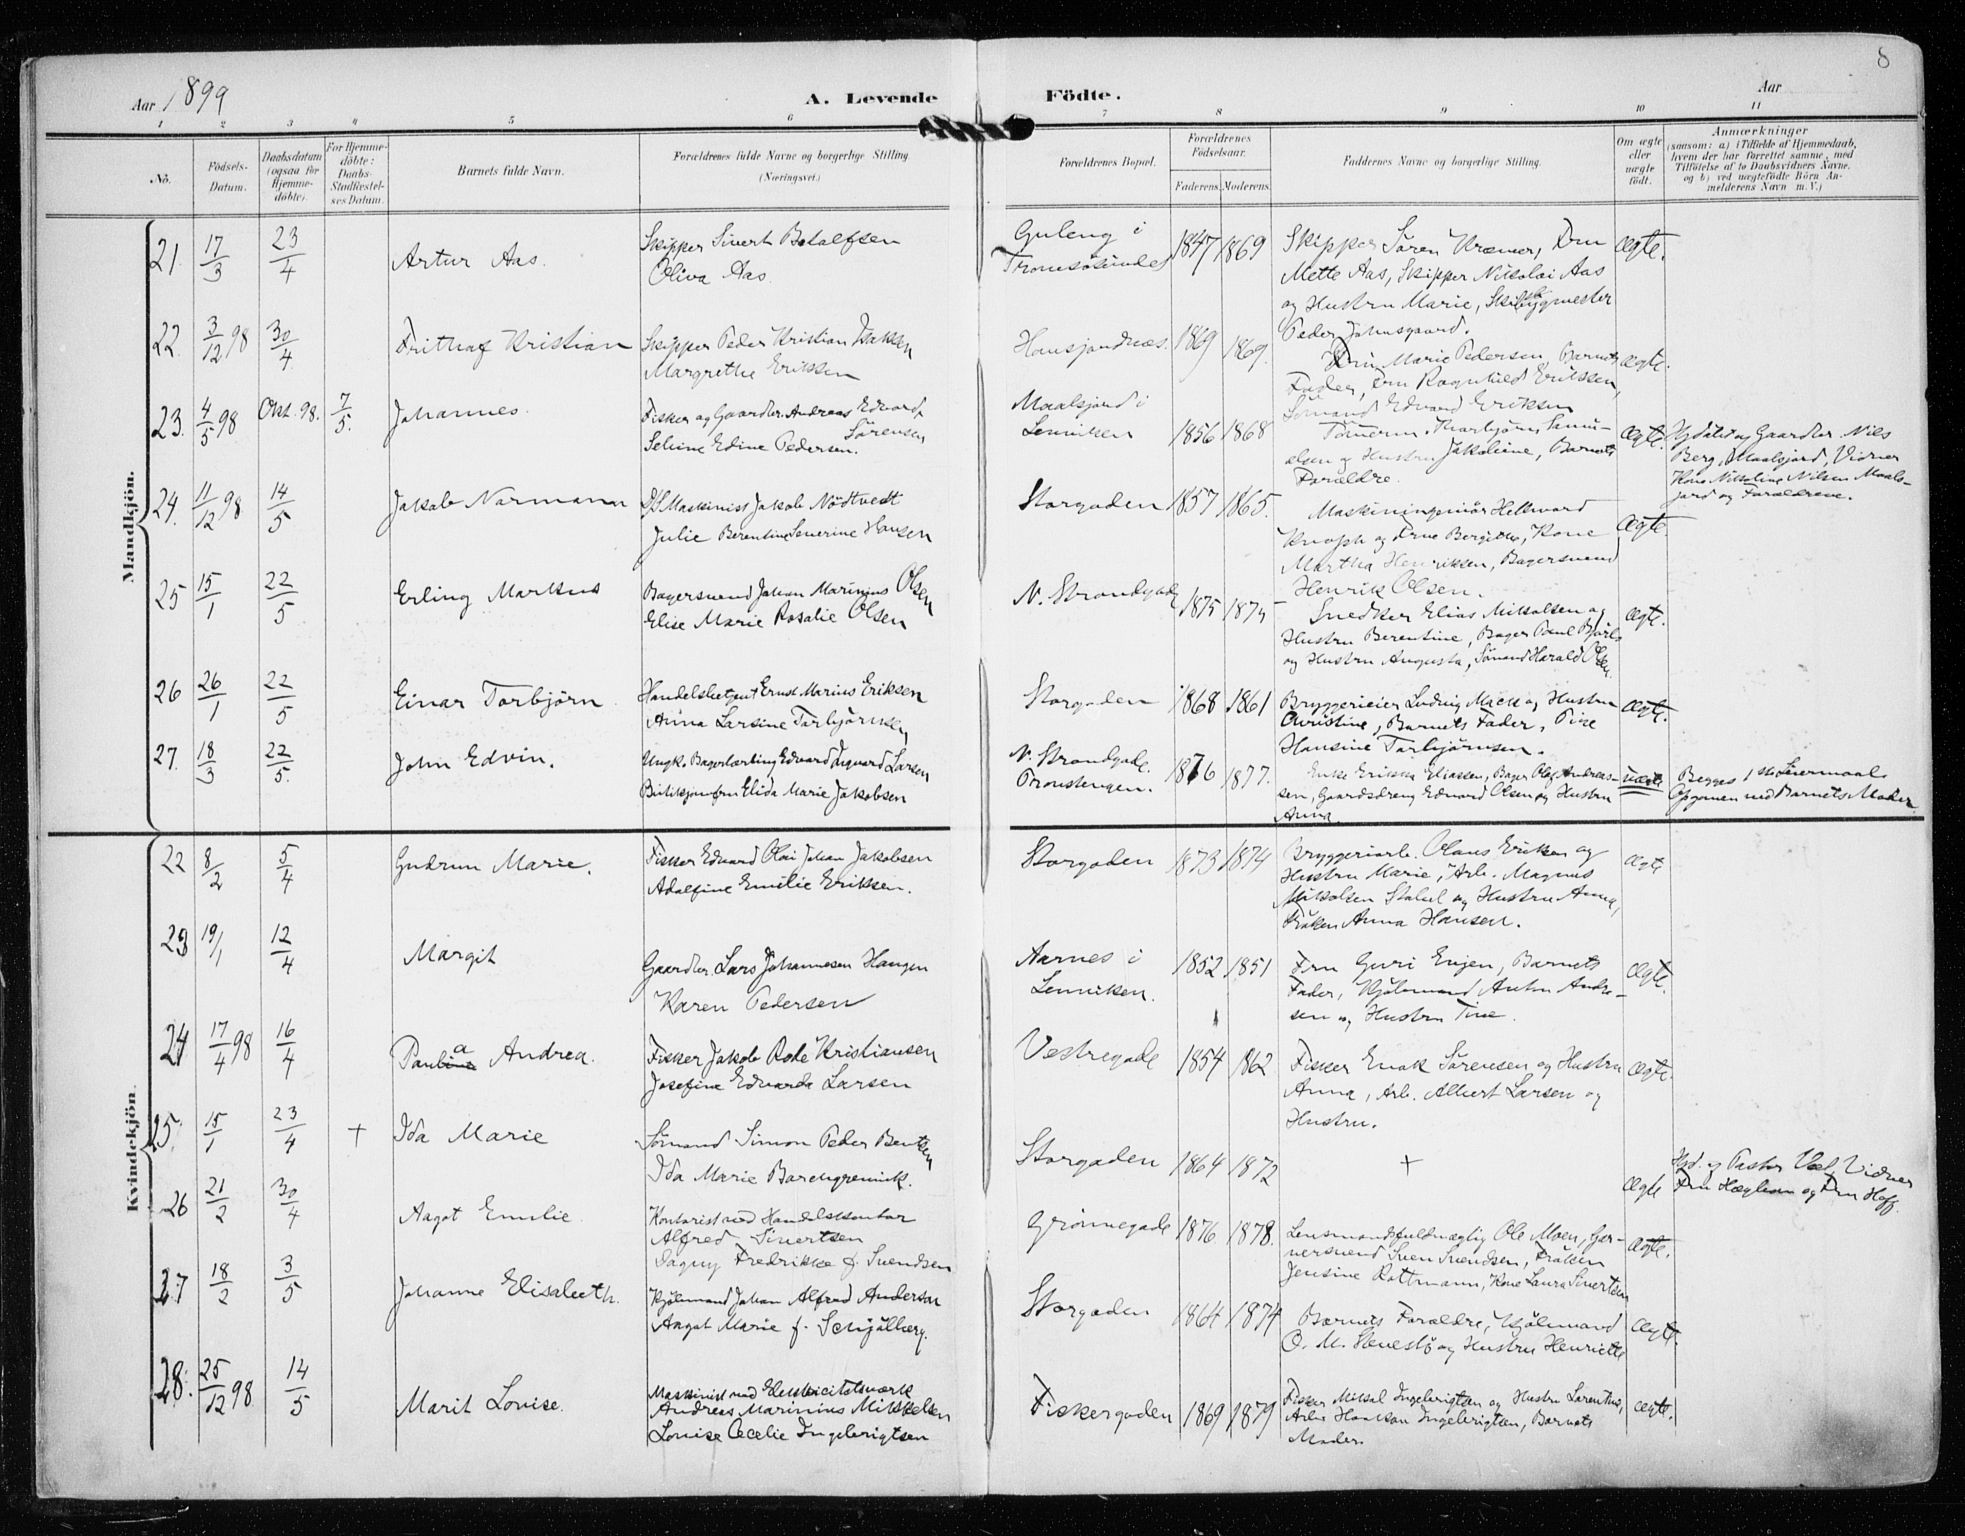 Aar 1899
A. Levende Födte.
Aar
8
1 2 3 4 5 6 7 8 9 10 11
No.
Födsels-Datum.
Daabsdatum (ogsaa for Hjemme-döbte).
For Hjemme-döbte: Daabs-Stadfæstel-ses Datum.
Barnets fulde Navn.
Forældrenes fulde Navne og borgerlige Stilling
(Næringsvei.)
Forældrenes Bopæl.
Forældrenes Födselsaar.
Faderens. Moderens.
Faddernes Navne og borgerlige Stilling.
Om ægte eller uægte födt.
Anmærkninger
(saasom: a) i Tilfælde af Hjemmedaab,
hvem der har forrettet samme, med
Tilföielse af to Daabsvidners Navne,
og b) ved uægtefödte Börn An-
melderens Navn m. V.)
Mandkjön.
21. 17/3 23/4 Artur Aas. Skipper Sivert Botolfsen
Oliva Aas.
Guleng i
Tromsösundet 1847 1869 Skipper Sören Kræmer, Fru
Mette Aas, Skipper Nikolai Aas
og Hustru Marie, Skibsbygmester
Peder Johnsgaard.
ægte.
22. 3/12 98 30/4 Frithjof Kristian Skipper Peder Kristian Isaksen
Margrethe Eriksen
Hansjordnæs. 1869 1869. Fru Marie Pedersen, Barnets
Fader, Fru Ragnhild Eriksen,
Sömand Edvard Eriksen
ægte.
23. 4/5 98 Okt. 98. 7/5. Johannes. Fisker og Gaardbr. Andreas Edvard
Sörensen
Seline Edine Pedersen.
Maalsjord i
Lenviken 1856 1868 Tömerm. Thorbjörn Samu-
elsen og Hustru Jakobine, Barnets
Forældre.
ægte.
Hjdöbt af Gaardbr Nils
Berg, Maalsjord, Vidner
Hans Nikolai Nilsen Maals-
jord og Forældrene.
24. 11/12 98 14/5 Jakob Normann D/S Maskinist Jakob Nödtvedt
Julie Berentine Severine Hansen
Storgaden 1857 1865. Maskiningeniör Hellward
Knoph og Frue Bergithe, Kone
Martha Henriksen, Bagersvend
Henrik Olsen.
ægte.
25 15/1 22/5 Erling Markus Bagersvend Johan Marinius Olsen
Elise Marie Rosalie Olsen
N. Strandgade 1875 1875 Snedker Elias Mikalsen og
Hustru Berentine, Bager Paul
og Hustru Augusta, Sömand Harald Olsen
ægte.
26 26/1 22/5 Einar Torbjörn Handelsbetjent Ernst Marius Eriksen
Anna Larsine Torbjörnsen
Storgaden 1868 1861 Bryggerieier Ludvig Mack og Hustru
Christine, Barnets Fader, Pige
Hansine Torbjörnsen.
ægte.
27. 18/3 22/5. John Edvin. Ungk. Bagerlærling Edvard Ingvard Larsen
Elida Marie Jakobsen
N. Strandgade.
1876 1877. Enke Erikka Eliassen, Bager Olaf Andreas-
sen, Gaardsdreng Edvard Olsen og Hustru
Anna.
uægte
Begges 1ste Leiermaal
Opgaven ved Barnets Moder.
Kvindekjön.
22 8/2 5/4 Gudrun Marie. Fisker Edvard Olai Johan Jakobsen
Adolfine Emilie Eriksen.
Storgaden 1873 1874 Bryggeriarb. Olaus Eriksen og
Hustru Marie, Arb. Magnus
Mikalsen og Hustru Anna,
Fröken Anna Hansen.
ægte
23 19/1 12/4 Margit Gaardbr. Lars Johannesen Haugen
Karen Pedersen
Aarnes i
Lenviken. 1852 1851 Fru Guri Engen, Barnets
Fader, Kjölemand Anton Andre-
sen og Hustru Tine.
ægte.
24 17/4 98 16/4 Paula Andrea. Fisker Jakob Rode Kristiansen
Josefine Edvarda Larsen
Vestregade 1854 1862 Fisker Enok Sörensen og Hustru
Anna, Arb. Albert Larsen og
Hustru.
ægte.
25. 15/1 23/4 + Ida Marie Sömand Simon Peder Bentsen
Ida Marie
Storgaden 1864 1872 +
ægte
Hjd. af Pastor Vidner
Fru og Fru Hoff.
26 21/2 30/4 Aagot Emilie. Kontorist ved Handelskontor
Alfred Sivertsen
Dagny Fredrikke f. Svendsen
Grönnegade 1876 1878. Lensmandsfuldmægtig Ole Moen, Gar-
versvend Sven Svendsen, Fröken
Jensine Rottmann, Kone Laura Sivertsen
ægte.
27 18/2 3/5 Johanne Elisabeth. Kjölemand Johan Alfred Anderson
Aagot Marie f. Schjölberg.
Storgaden 1864 1874 Barnets Forældre, Kjölemand
O. M. og Hustru Henriette
ægte.
28. 25/12 98. 14/5 Marit Lovise. Maskinist ved Elektricitetsværk
Andreas Marinius Mikkelsen
Lovise Cecelie Ingebrigtsen
Fiskergaden 1869 1879 Fisker Mikal Ingebrigtsen og Hustru Lorentine,
Arbr Ingebrigtsen, Barnets
Moder.
ægte.